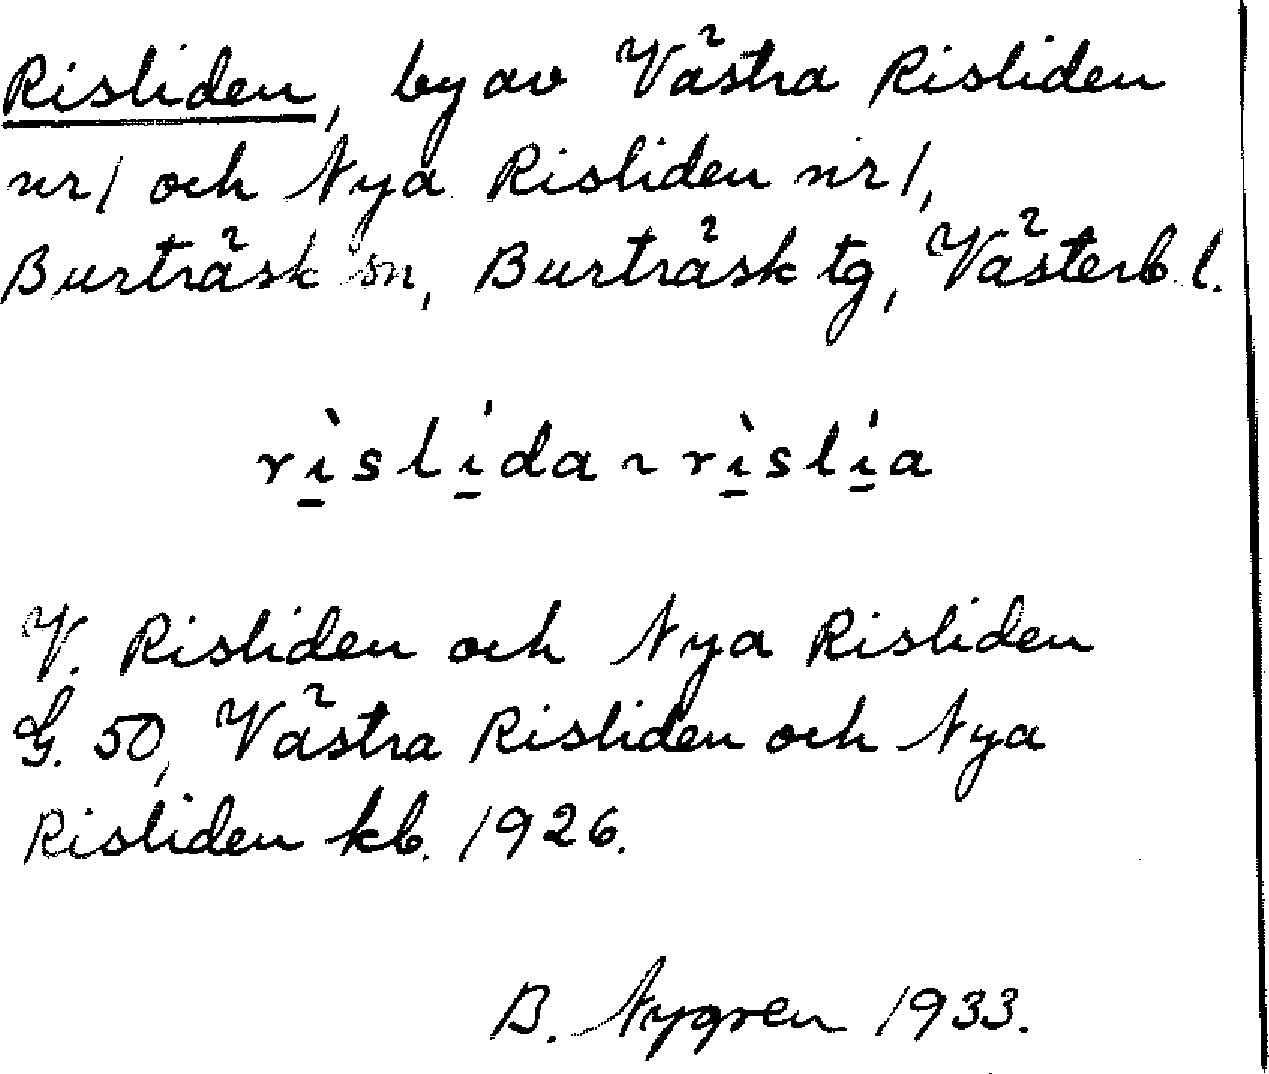 Risliden, by av Västra Risliden
nr 1 och Nya Risliden nr 1,
Burträsk sn, Burträsk tg, Västerb. l.
rì̠slí̠da ~ rì̠slí̠a
V. Risliden och Nya Risliden
G. 50, Västra Risliden och Nya
Risliden kb. 1926.
B. Nygren 1933.